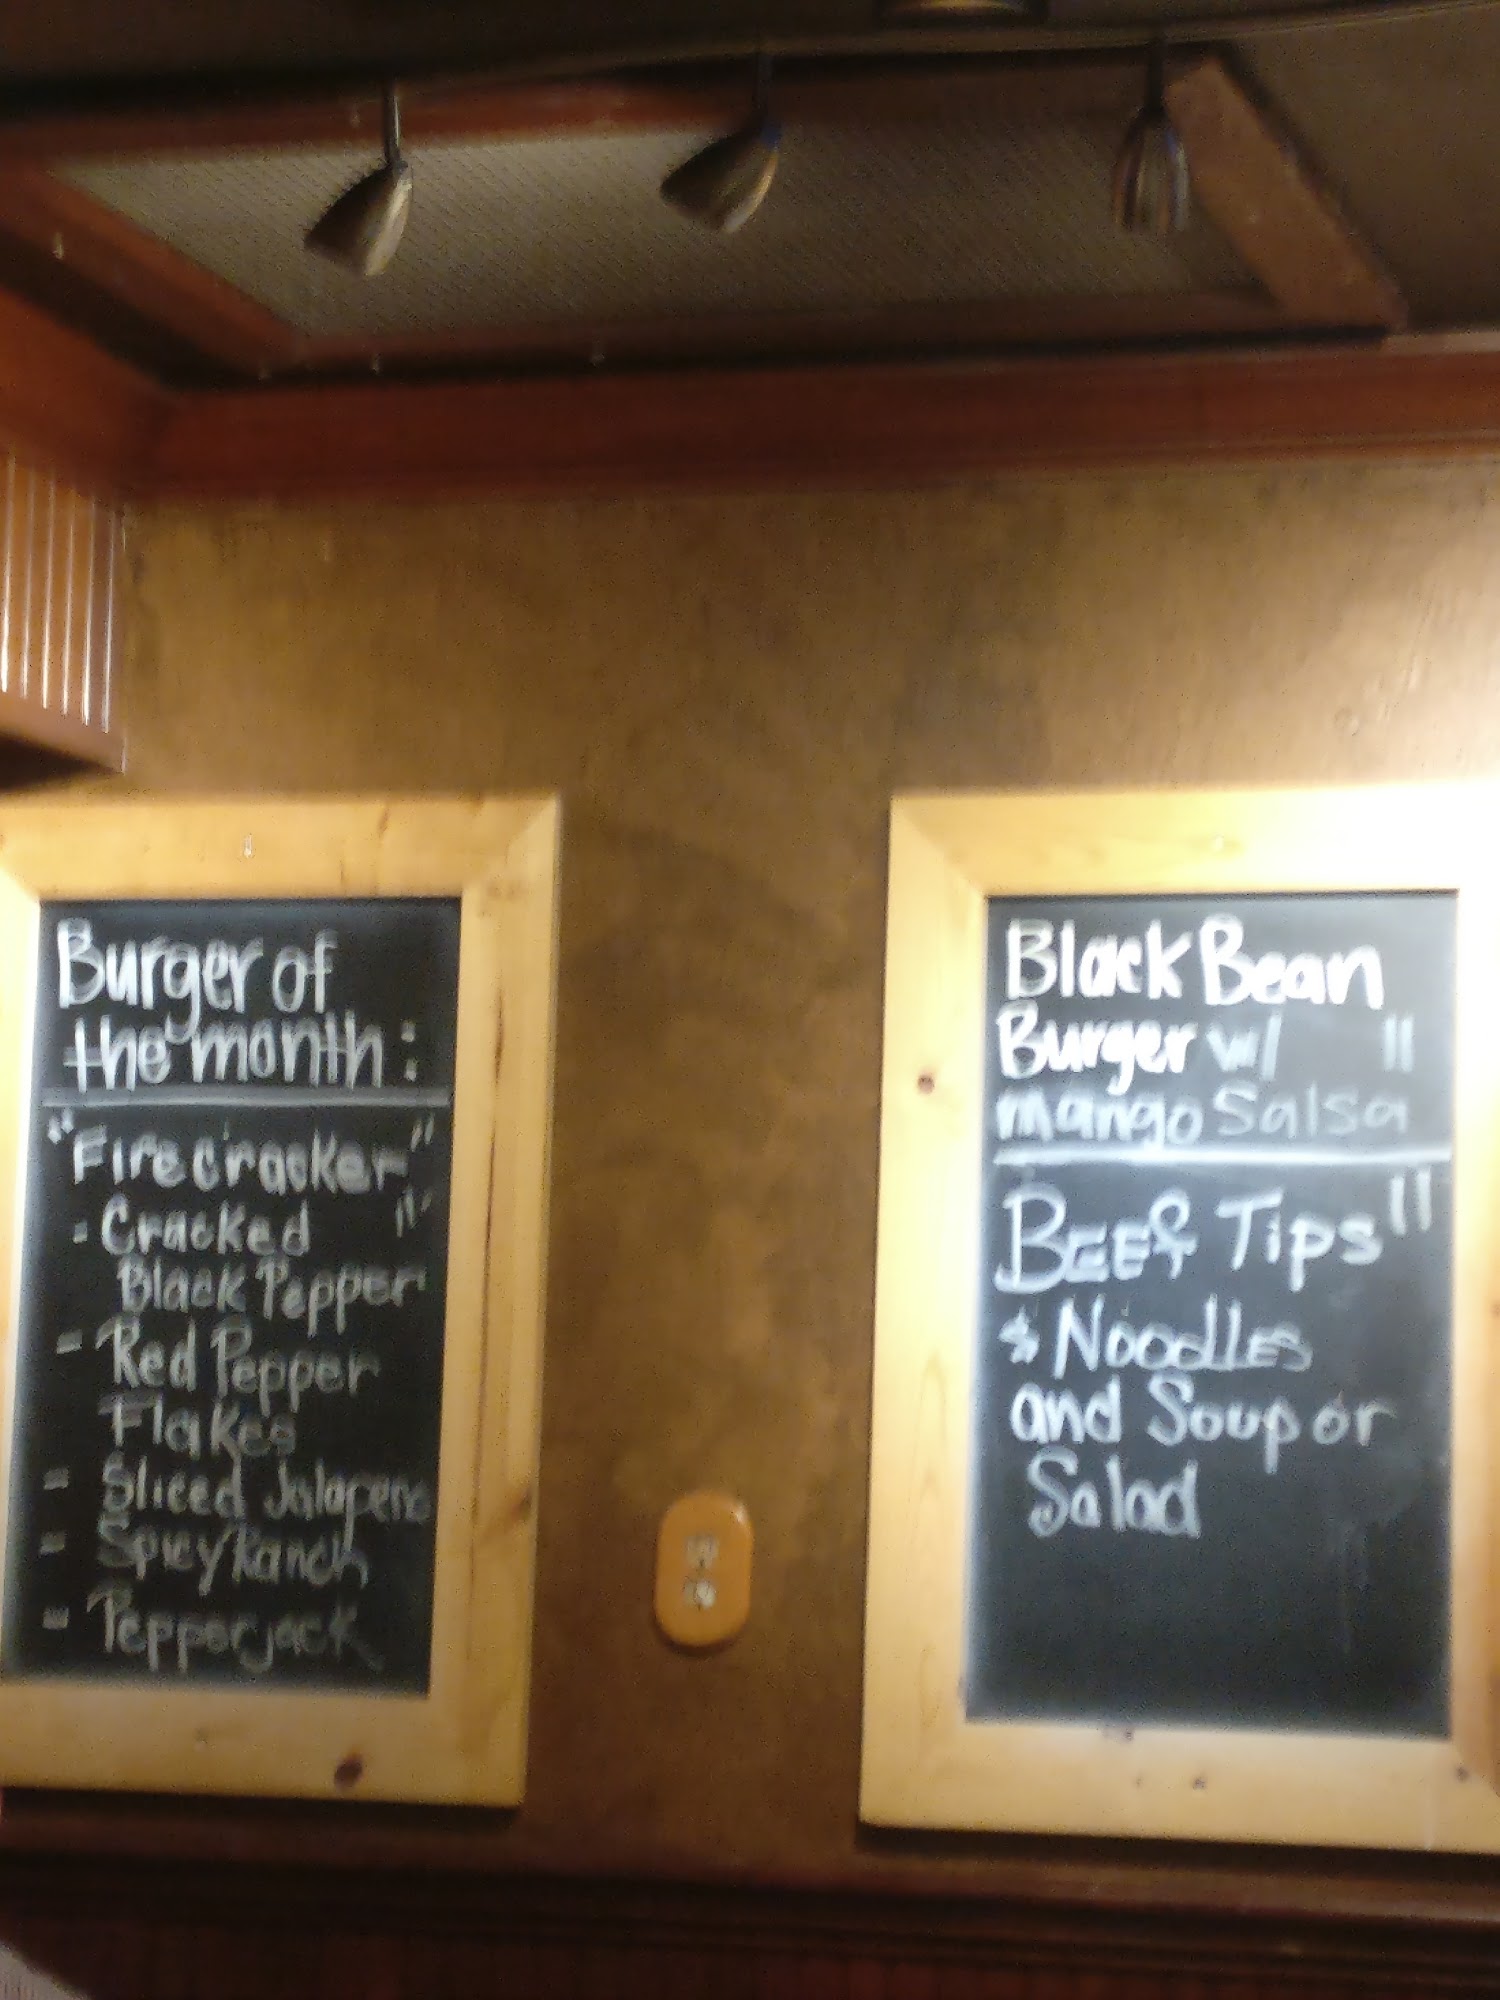 Burger of
the month:
"Firecracker"
- Cracked 11-
Black Pepper
- Red Pepper
Flakes
- Sliced Jalapeno
- Spicy Ranch
- Pepperjack
Black Bean
Burger w/ 11
mango Salsa
BEEF Tips 11
& Noodles
and Soup or
Salad